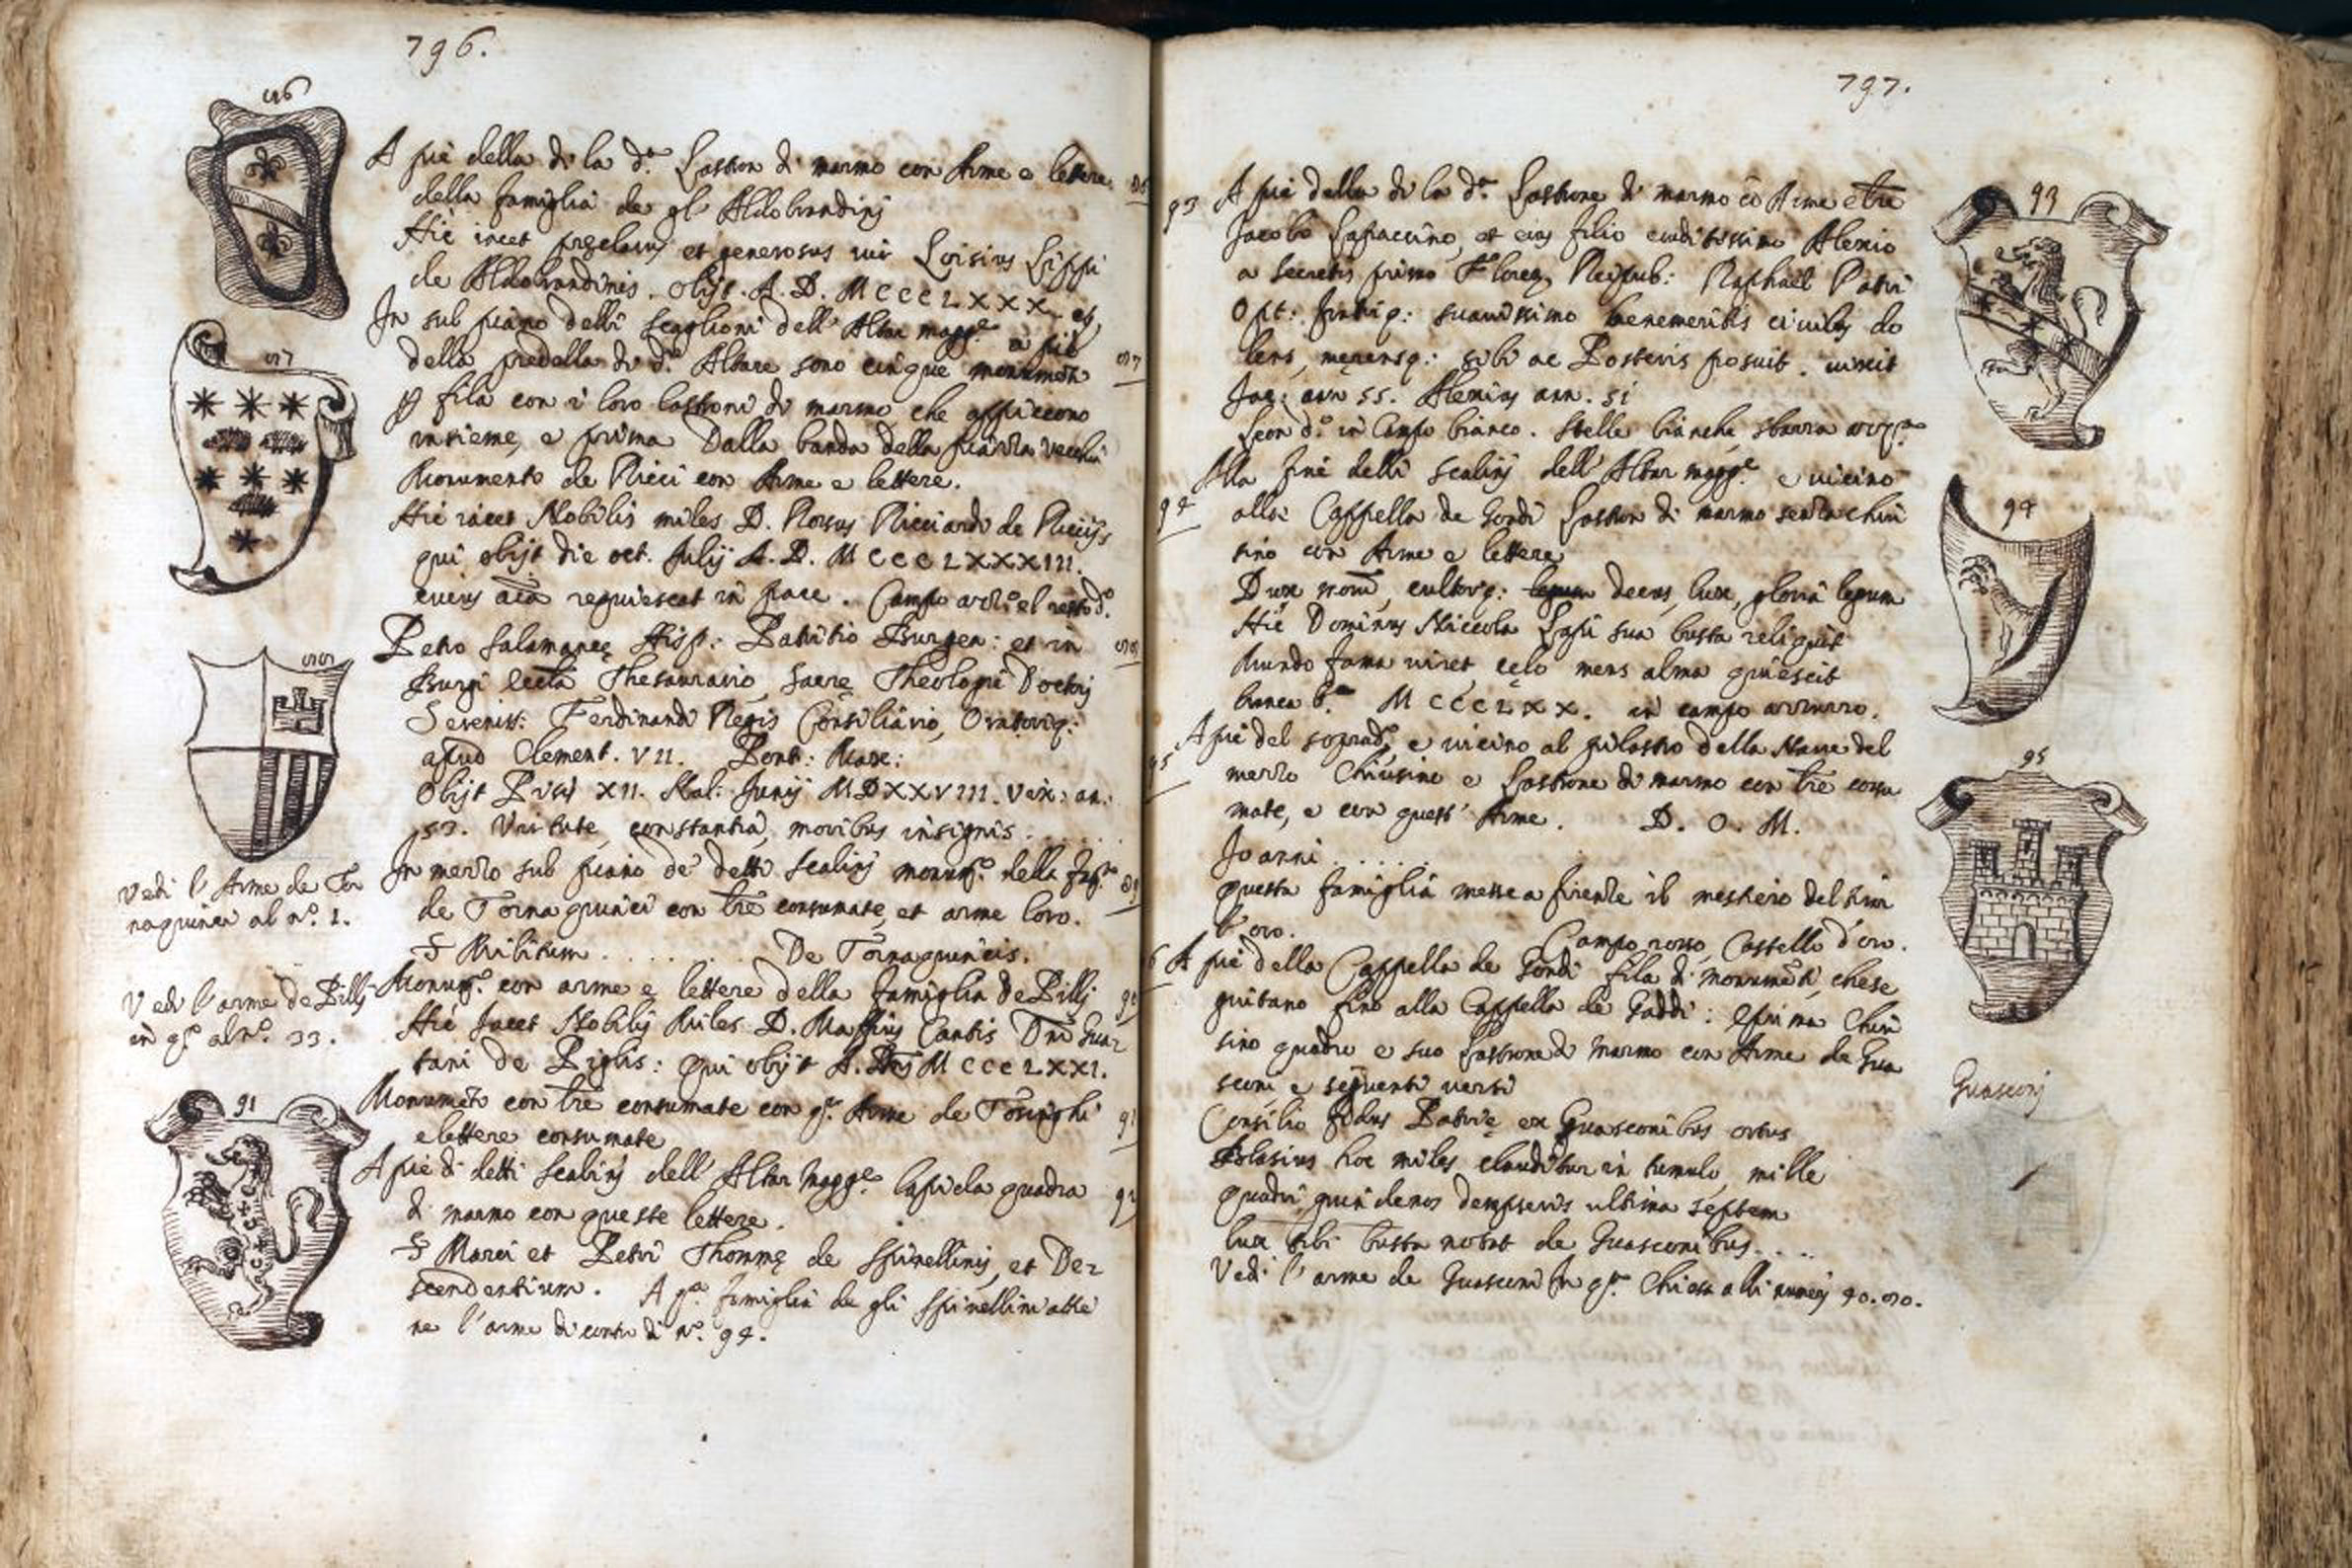 796.
86
A piè della di la d.ª Lastron di marmo con Arme e lettere
della famiglia de gl' Aldobrandinj
Hic iacet preclarus et generosus vir Loisius Lippi
de Aldobrandinis. Obijt. A. D. MCCCLXXX
In sul piano delli scaglioni dell' Altar magg.e a piè
della predella di d.º Altare sono cinque monumēti
p fila con i loro lastroni di marmo che appiccono
insieme, e prima Dalla banda della piazza vecchia
Monumento de Ricci con Arme e lettere.
87
Hic iacet Nobilis miles D. Rossus Ricciardi de Riccijs
qui obijt die oct. Julij A. D. MCCCLXXXIII.
cuius aīa requiescat in pace. Campo azz.º el resto d.º
88
Petro Salamance Hisp: Patritio Burgen: et in
Burgi Thesaurario, Sacrę Theologie Doctorj
Sereniss: Ferdinandi Regis Consiliario, Oratoriq:
apud Clement. VII. Pont: Max:
Obijt XII. Kal: Junij MDXXVIII. Vix: an:
53. Virtute, constantia, moribus insignis . . . .
In mezzo sul piano de' detti scalinj monum.º della fam.ª
de Tornaquinci con lr̄e consumate, et arme loro.
Vedi l' Arme de Tor
naquinci al n.º 1.
S Militum . . . . . . De Tornaquincis.
Monum.º con arme e lettere della famiglia de Billj
Vedi l'arme de Billj
in q.ª al n.º 33.
Hic Jacet Nobilis Miles D. Cantis Dn̄i Guaz
tani de Biglis: qui obijt A. MCCCLXXI.
91
Monumēto con lr̄e consumate con q.ª Arme de Tosinghi
e lettere consumate
A piè di detti scalinj dell' Altar Magg.e lapida quadra
di marmo con queste lettere.
S Marci et Petri Thommę de Spinellinis, et Dez
scendentium. A q.ª famiglia de gli Spinellini atte
ne l'arme di conto di n.º 94.
797.
93
A piè della di la d.ª Lastrone di marmo cō Arme e lr̄e
Jacobo et eius filio eruditissimo Alexio
a secretis primo Floren. Reipub: Raphael Patri
Opt: fratriq: suavissimo benemeritis civibus do
lens, merensq: sibi ac Posteris posuit. vixit
Jac: ann 55. Alexius ann. 51
Leon d.º in Campo bianco. Stelle bianche, sbarra
94
Alla fine delli scalinj dell' Altar magg.e e vicino
alla Cappella de Gondi Lastron di marmo senza chiu
sino con Arme e lettere
Dux cultorq: decus, lux, gloria legum
Hic Dominus Niccola Lapi sua busta reliquit
Mundo fama viret, celo mens alma quiescit
branca b.ª MCCCLXX. in campo azzurro.
95
A piè del soprad.º, e vicino al pilastro della Nave del
mezzo Chiusino e Lastrone di marmo con lr̄e consu
mate, e con quest' Arme. D. O. M.
Joanni . . . . .
questa famiglia messe a firenze il mestiero del tirar
l'oro. Campo rosso, Castello d'oro.
A piè della Cappella de Gondi fila di monumēti, che se
guitano fino alla Cappella de Gaddi: e prima Chiu
sino quadro e suo Lastrone di marmo con Arme de Gua
sconi e seguenti versi
Guasconj
Consilio fidus Patrię ex Guasconibus ortus
Blasius hoc miles clauditur in tumulo, mille
quadri quindenos dempseris ultima septem
lux tibi busta notat de Guasconibus . . . .
Vedi l'arme de Guasconi in q.ª Chiesa alli numeri 40. 80.